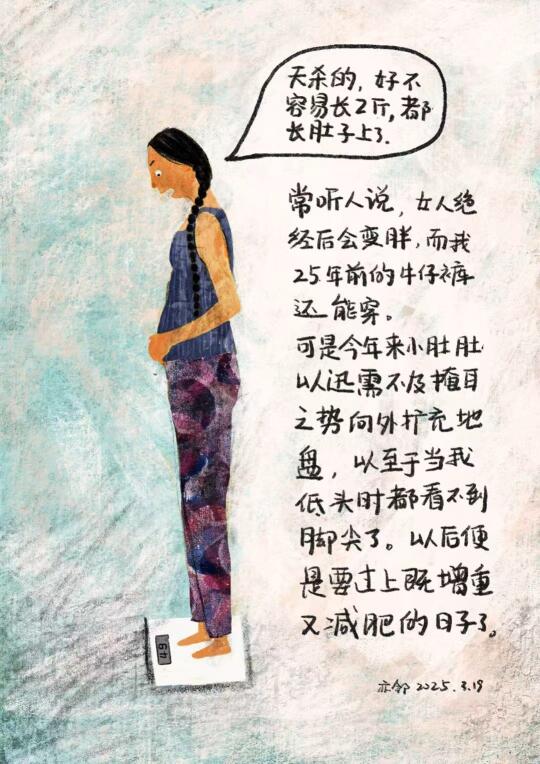 天杀的，好不
容易长2斤，都
长肚子上了.
常听人说，女人绝
经后会变胖，而我
25年前的牛仔裤
还能穿。
可是今年来小肚肚
以迅需不及掩耳
之势向外扩充地
盘，以至于当我
低头时都看不到
脚尖了。以后便
是要过上既增重
又减肥的日子了。
亦邻 2025.3.19
49